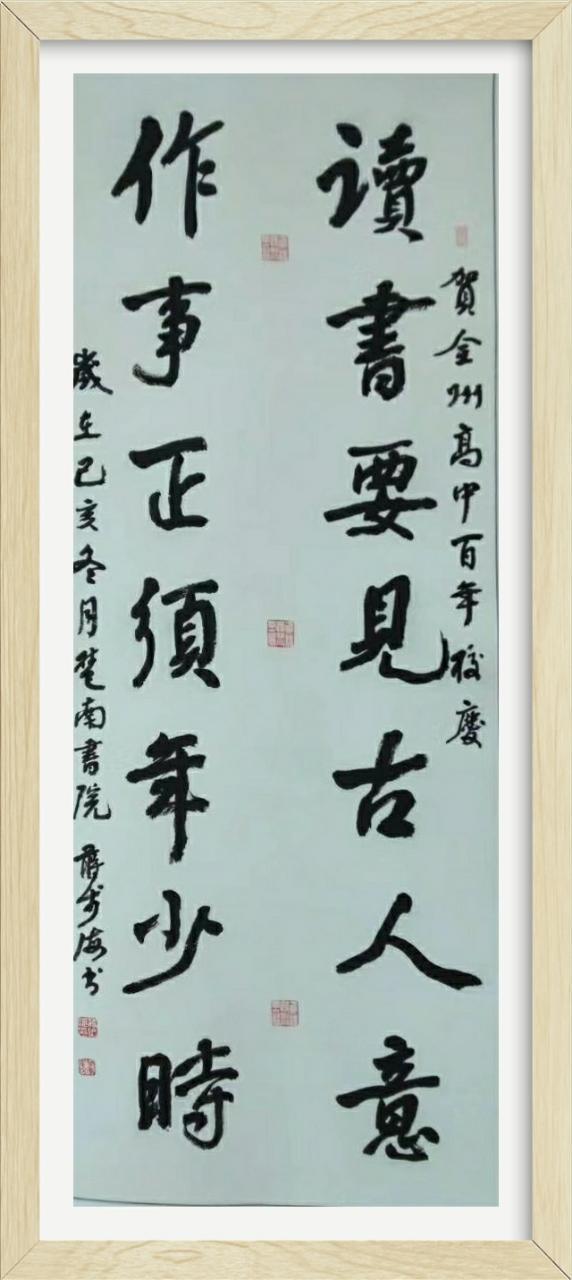 賀全州高中百年校慶
讀書要見古人意
作事正須年少時
歲在己亥冬月楚南書院蔣海书